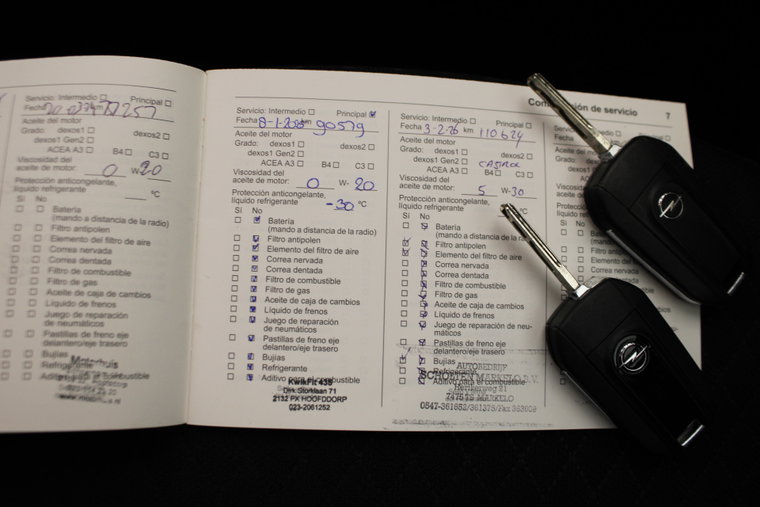 Confirmación de servicio 7
Servicio: Intermedio ☐ Principal ☐
Fecha km 77257
Aceite del motor
Grado: dexos1 ☐ dexos2 ☐
dexos1 Gen2 ☐
ACEA A3 ☐ B4 ☐ C3 ☐
Viscosidad del
aceite de motor: 0 W-20
Protección anticongelante,
líquido refrigerante °C
Sí No
Batería
(mando a distancia de la radio)
Filtro antipolen
Elemento del filtro de aire
Correa nervada
Correa dentada
Filtro de combustible
Filtro de gas
Aceite de caja de cambios
Líquido de frenos
Juego de reparación
de neumáticos
Pastillas de freno eje
delantero/eje trasero
Bujías
Refrigerante
Servicio: Intermedio ☐ Principal ☑
Fecha km 90579
Aceite del motor
Grado: dexos1 ☐ dexos2 ☐
dexos1 Gen2 ☐
ACEA A3 ☐ B4 ☐ C3 ☐
Viscosidad del
aceite de motor: 0 W- 20
Protección anticongelante,
líquido refrigerante -30 °C
Sí No
Batería
(mando a distancia de la radio)
Filtro antipolen
Elemento del filtro de aire
Correa nervada
Correa dentada
Filtro de combustible
Filtro de gas
Aceite de caja de cambios
Líquido de frenos
Juego de reparación
de neumáticos
Pastillas de freno eje
delantero/eje trasero
Bujías
Refrigerante
Aditivo para el combustible
KwikFit 435
Dirk Storklaan 71
2132 PX HOOFDDORP
023-2061252
Servicio: Intermedio ☐
Fecha 3-2-26 km 110.624
Aceite del motor
Grado: dexos1 ☐
dexos1 Gen2 ☐ CASTROL
ACEA A3 ☐ B4 ☐ C3 ☐
Viscosidad del
aceite de motor: 5 W-30
Protección anticongelante,
líquido refrigerante
Sí No
Batería
(mando a distancia de la
Filtro antipolen
Elemento del filtro de aire
Correa nervada
Correa dentada
Filtro de combustible
Filtro de gas
Aceite de caja de cambios
Líquido de frenos
Juego de reparación de neu-
máticos
Pastillas de freno eje
delantero/eje trasero
Bujías
Refrigerante
Aditivo para el combustible
AUTOBEDRIJF
SCHOLTEN MARKELO B.V.
MARKELO